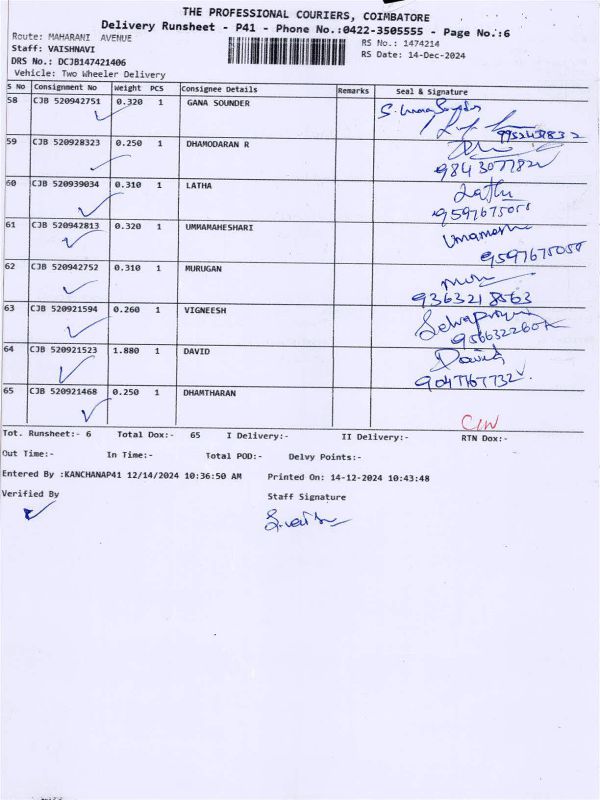 THE PROFESSIONAL COURIERS, COIMBATORE
Delivery Runsheet - P41 - Phone No.:0422-3505555 - Page No.:6
Route: MAHARANI AVENUE
RS No.: 1474214
Staff: VAISHNAVI
RS Date: 14-Dec-2024
DRS No.: DCJB147421406
Vehicle: Two Wheeler Delivery
S No Consignment No Weight PCS Consignee Details Remarks Seal & Signature
58 CJB 520942751 0.320 1 GANA SOUNDER
59 CJB 520928323 0.250 1 DHAMODARAN R
9843077821
60 CJB 520939034 0.310 1 LATHA Latha
9597675055
61 CJB 520942813 0.320 1 UMMAMAHESHARI
9597675055
62 CJB 520942752 0.310 1 MURUGAN
9363218563
63 CJB 520921594 0.260 1 VIGNEESH
64 CJB 520921523 1.880 1 DAVID David
9047167732
65 CJB 520921468 0.250 1 DHAMTHARAN
Tot. Runsheet:- 6 Total Dox:- 65 I Delivery:- II Delivery:- RTN Dox:-
Out Time:- In Time:- Total POD:- Delvy Points:-
Entered By :KANCHANAP41 12/14/2024 10:36:50 AM Printed On: 14-12-2024 10:43:48
Verified By Staff Signature